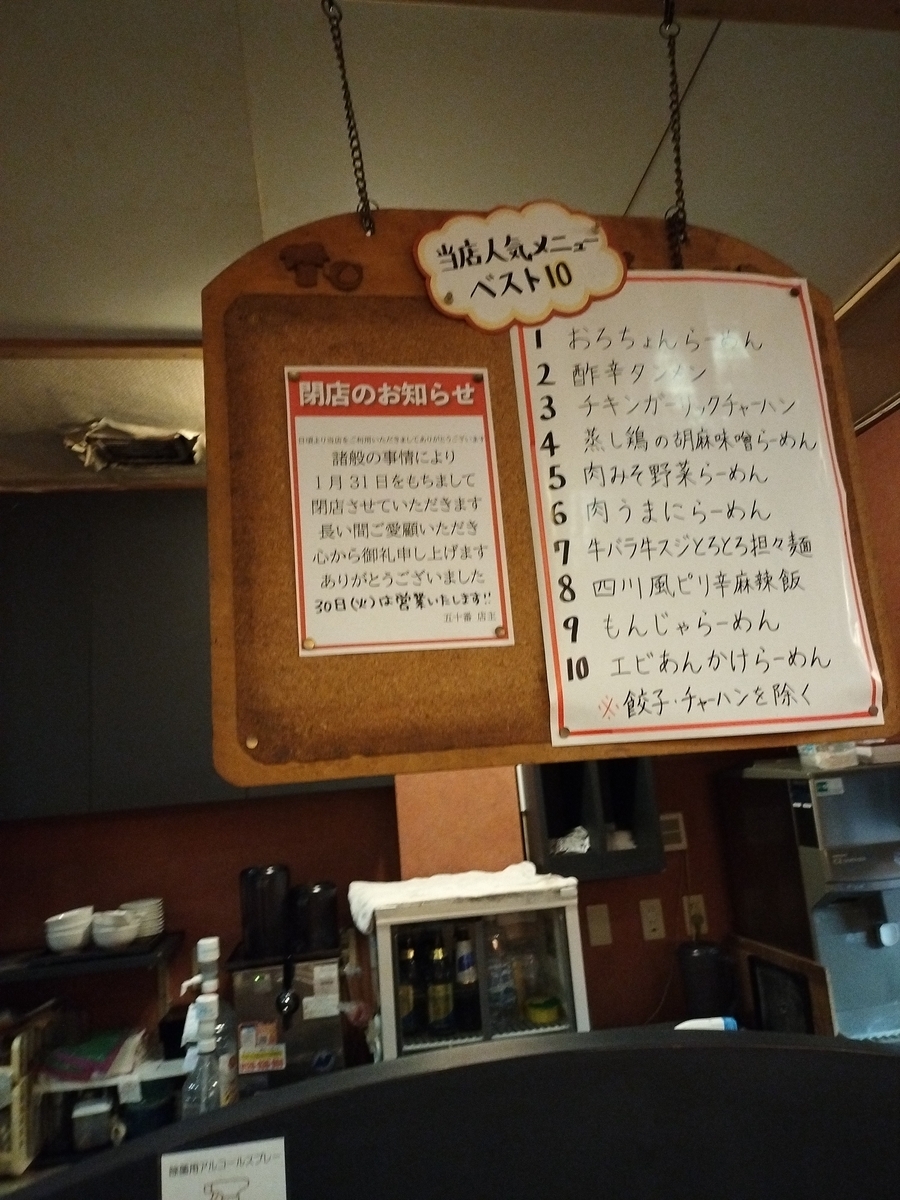 当店人気メニュー
ベスト10
閉店のお知らせ
日頃より当店をご利用いただきましてありがとうございます
諸般の事情により
1月31日をもちまして
閉店させていただきます
長い間ご愛顧いただき
心から御礼申し上げます
ありがとうございました
30日(火)は営業いたします!!
五十番 店主
1 おろちょんらーめん
2 酢辛タンメン
3 チキンガーリックチャーハン
4 蒸し鶏の胡麻味噌らーめん
5 肉みそ野菜らーめん
6 肉うまにらーめん
7 牛バラ牛スジとろとろ担々麺
8 四川風ピリ辛麻辣飯
9 もんじゃらーめん
10 エビあんかけらーめん
※餃子・チャーハンを除く
除菌用アルコールスプレー